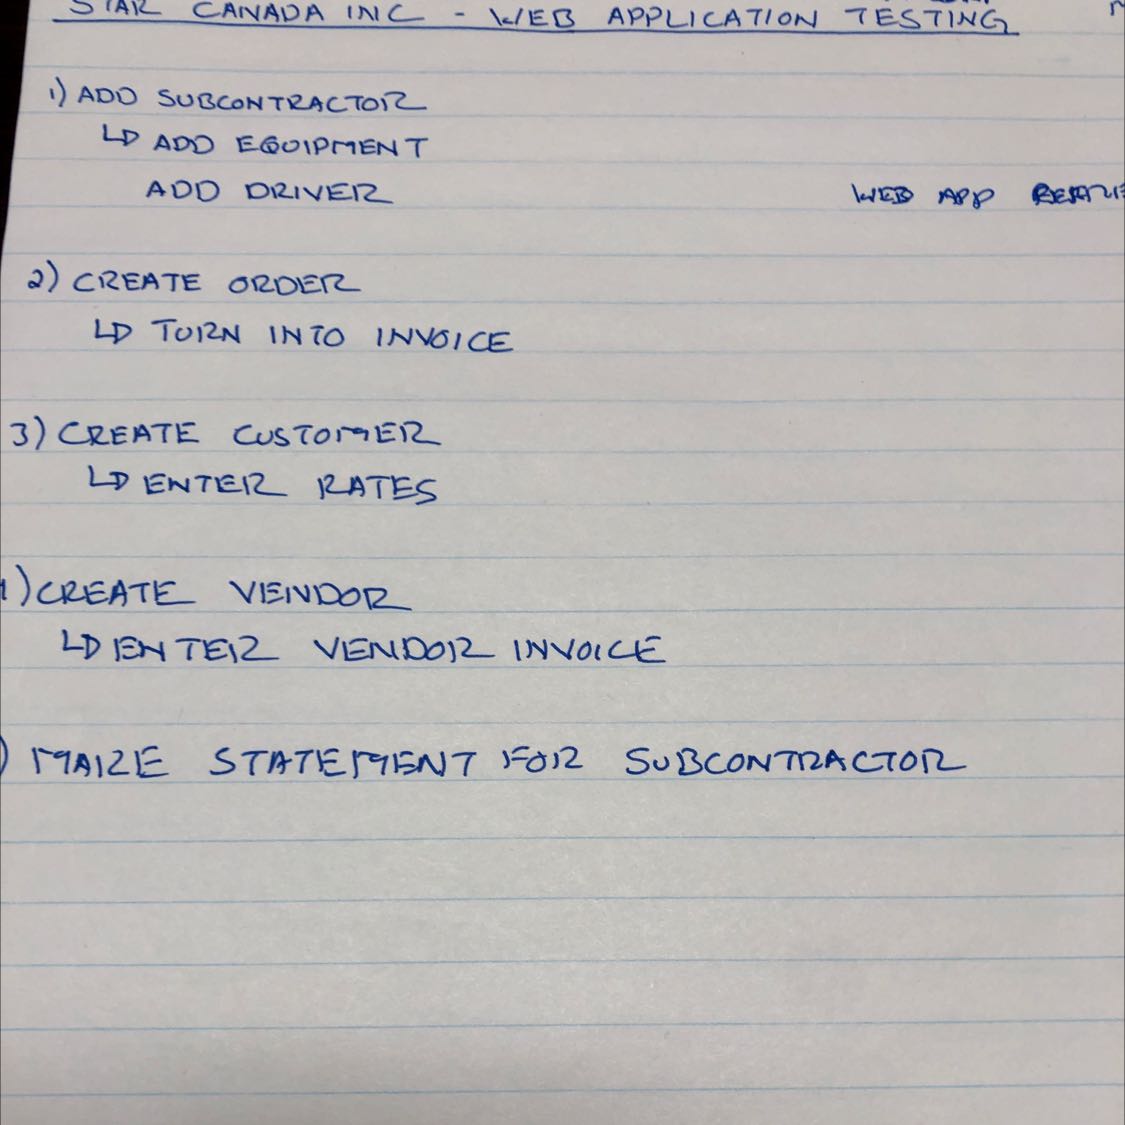 STAR CANADA INC - WEB APPLICATION TESTING
1) ADD SUBCONTRACTOR
↳ ADD EQUIPMENT
ADD DRIVER
WEB APP
2) CREATE ORDER
↳ TURN INTO INVOICE
3) CREATE CUSTOMER
↳ ENTER RATES
) CREATE VENDOR
↳ ENTER VENDOR INVOICE
) MAKE STATEMENT FOR SUBCONTRACTOR